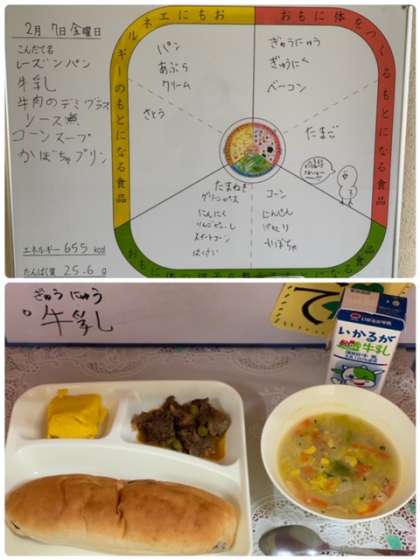 2月7日金曜日
こんだて名
レーズンパン
牛乳
牛肉のデミグラス
ソース煮
コーンスープ
かぼちゃプリン
エネルギー 655 kcal
たんぱく質 25.6 g
ルネエにもお
ギーのもとになる食品
おもに体をつくるもとになる食品
パン
あぶら
クリーム
さとう
ぎゅうにゅう
ぎゅうにく
ベーコン
たまご
たまねぎ
グリンピース
にんにく
スイートコーン
はくさい
コーン
にんじん
パセリ
かぼちゃ
ぎゅうにゅう
牛乳
いかるが
牛乳